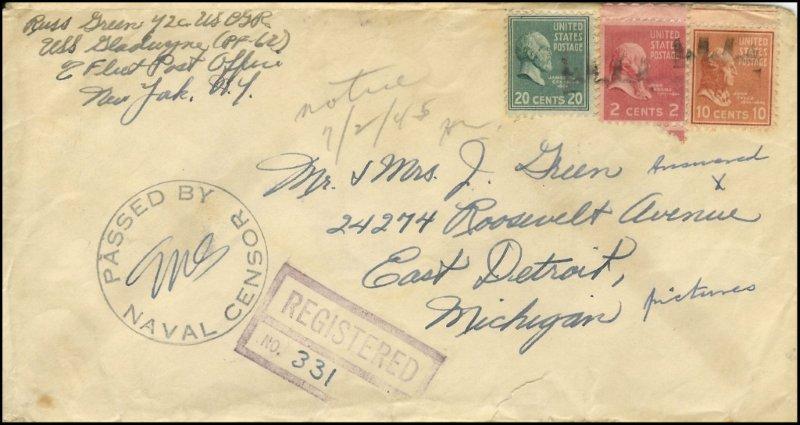 Russ Green Y2c USCGR
USS Gladwyne (PF-62)
℅ Fleet Post Office
New York, N.Y.
UNITED STATES POSTAGE
20 CENTS 20
UNITED STATES POSTAGE
2 CENTS 2
UNITED STATES POSTAGE
10 CENTS 10
notice
7/2/45
Mr. & Mrs. J. Green
24274 Roosevelt Avenue
East Detroit,
Michigan
answered
x
pictures
PASSED BY
NAVAL CENSOR
REGISTERED
NO. 331